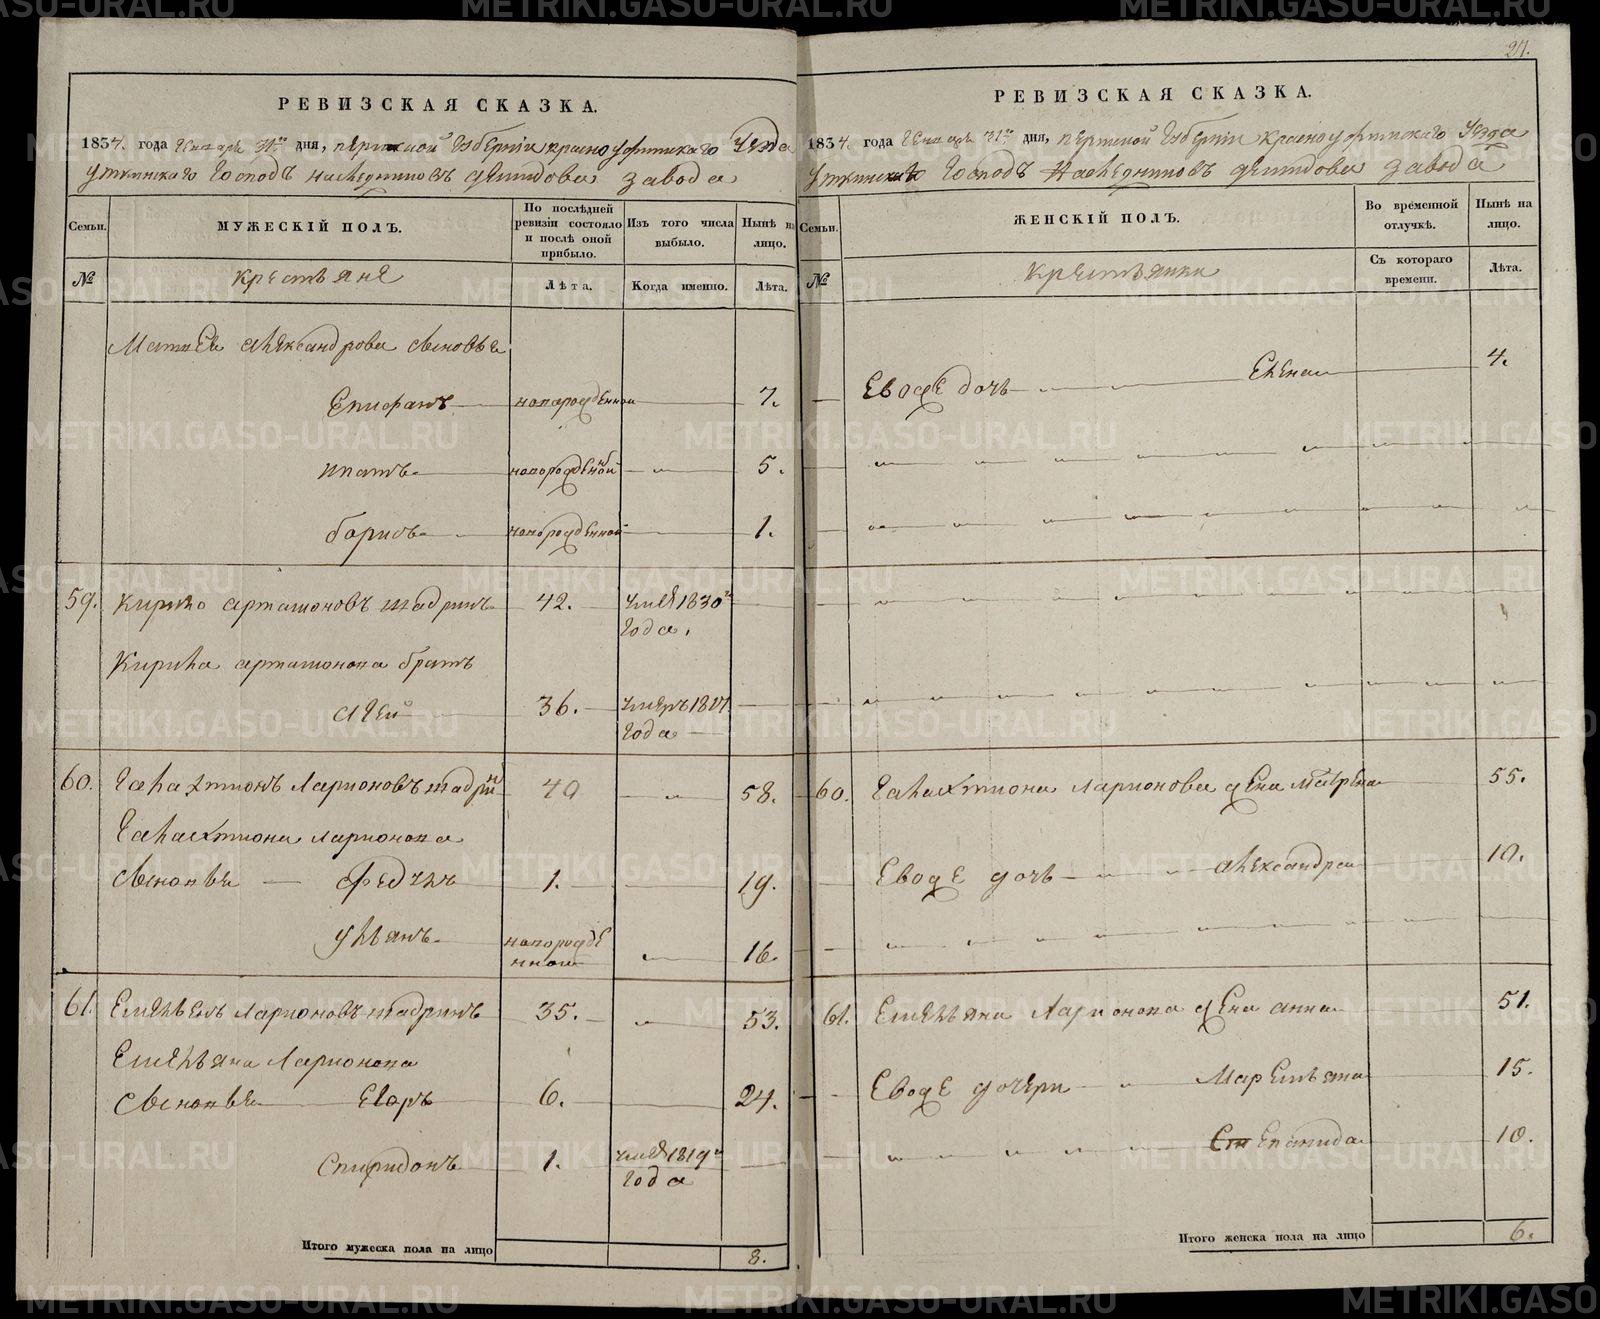 27.
РЕВИЗСКАЯ СКАЗКА.
1834. года Генваря 31го дня, Пермской Губернiи Красноуфимскаго Уезда
Уткинскаго Господъ Наследниковъ Демидова завода
Семьи.
МУЖЕСКIЙ ПОЛЪ.
По послѣдней ревизiи состояло и послѣ оной прибыло.
Изъ того числа выбыло.
Нынѣ на лицо.
№
Крестьяне
Лѣта.
Когда именно.
Лѣта.
Матвея Александрова сыновья
Епифанъ новорожденной 7.
Ипатъ новорожденной 5.
Борисъ новорожденной 1.
59. Кирило Артамоновъ Шадринъ 42. 1830го
года.
Кирила Артамонова братъ
Агей 36. умеръ 1817
года
60. Галахтионъ Ларионовъ Шадринъ 40 58.
Галахтиона Ларионова
сыновья Федулъ 1. 19.
Ульянъ новорожде
нной 16.
61. Емельянъ Ларионовъ Шадринъ 35. 53.
Емельяна Ларионова
сыновья Егоръ 6. 24.
Спиридонъ 1. 1819го
года
Итого мужеска пола на лицо 8.
РЕВИЗСКАЯ СКАЗКА.
1834. года Генваря 31го дня, Пермской Губернiи Красноуфимскаго Уезда
Уткинскаго Господъ Наследниковъ Демидова завода
Семьи.
ЖЕНСКIЙ ПОЛЪ.
Во временной отлучкѣ.
Нынѣ на лицо.
№
Крестьянки
Съ котораго времени.
Лѣта.
Евоже дочь Елена 4.
60. Галахтиона Ларионова жена Матрена 55.
Евоже дочь Александра 10.
61. Емельяна Ларионова жена Анна 51.
Евоже дочери Маремьяна 15.
Степанида 10.
Итого женска пола на лицо 6.
METRIKI.GASO-URAL.RU